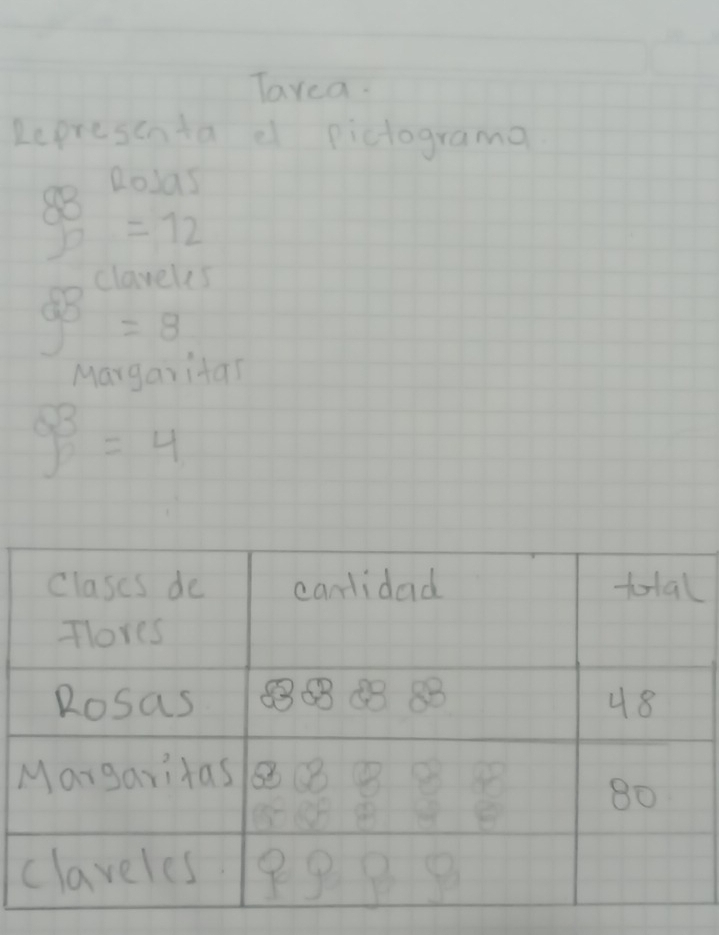 Tarea.
Representa el pictograma
Rosas
= 12
Claveles
= 8
Margaritas
= 4
Clases de
Flores
cantidad
total
Rosas
48
Margaritas
80
Claveles